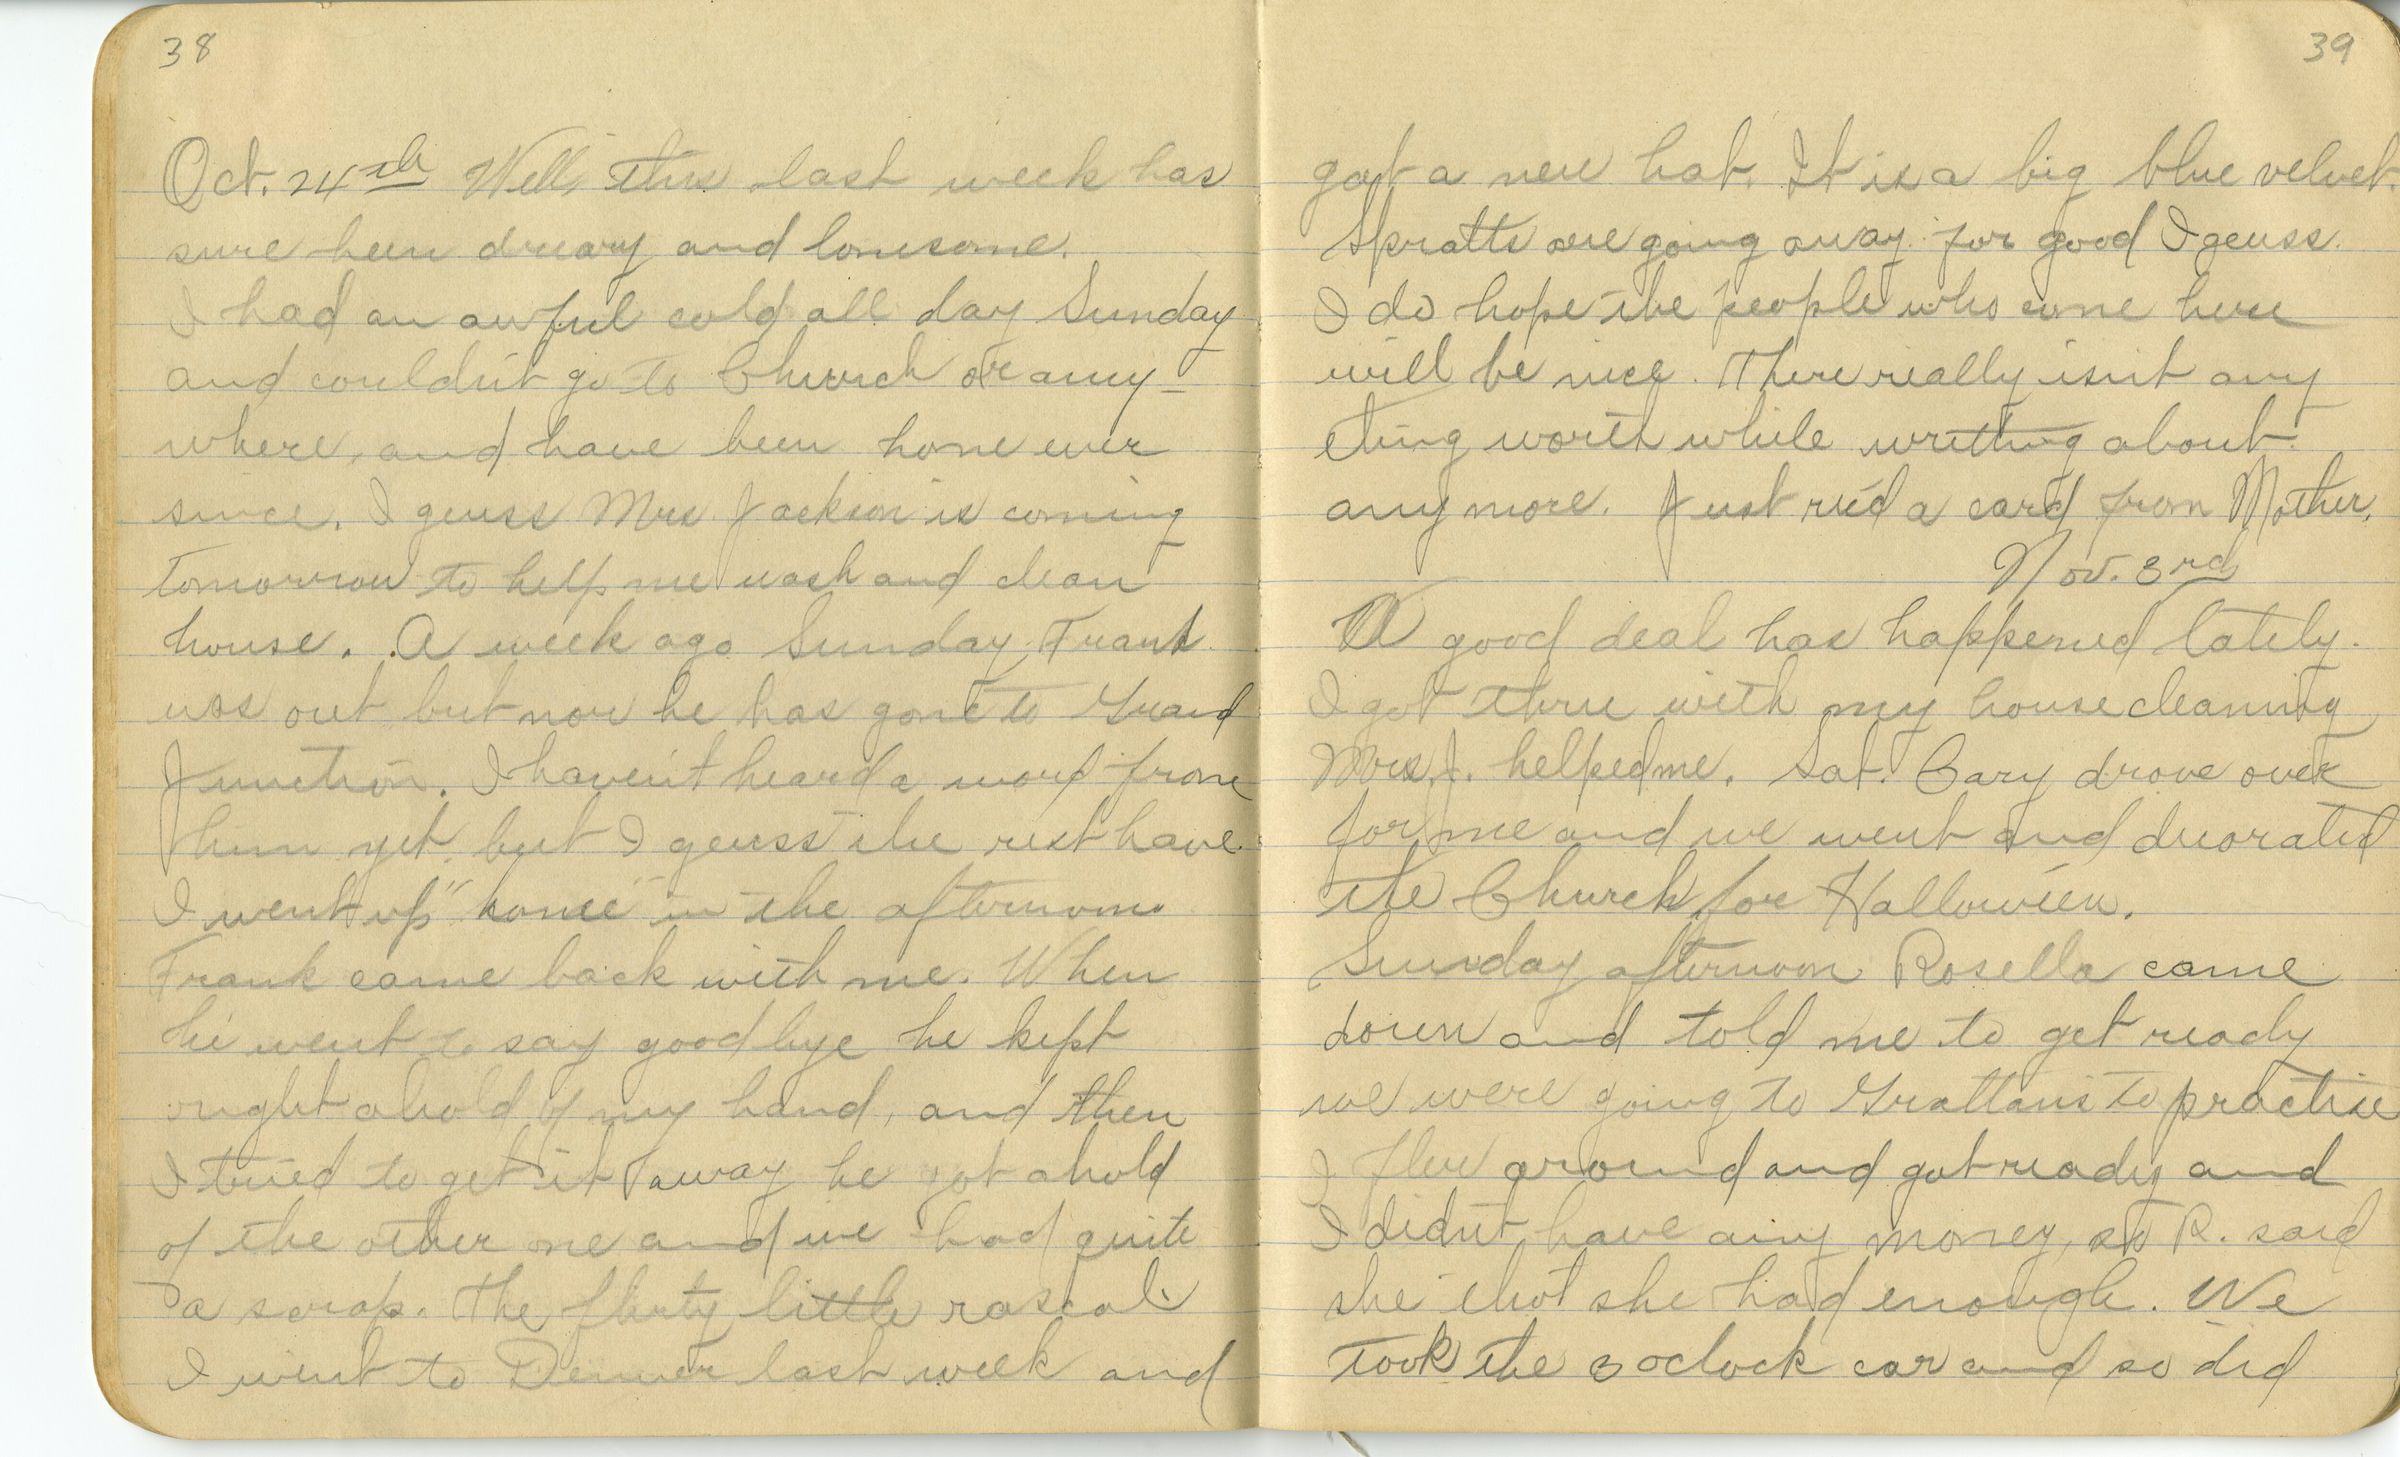 38
Oct. 24th Well, this last week has
sure been dreary and lonesome.
I had an awful cold all day Sunday
and couldn't go to Church or any-
where, and have been home ever
since. I geuss Mrs Jackson is coming
tomorrow to help me wash and clean
house. A week ago Sunday Frank
was out but now he has gone to Grand
Junction. I haven't heard a word from
him yet, but I geuss the rest have.
I went up "home" in the afternoon.
Frank came back with me. When
he went to say good bye he kept
ought ahold of my hand, and then
I tried to get it away he got ahold
of the other one and we had quite
a scrap. The flirty little rascal.
I went to Denver last week and
39
got a new hat. It is a big blue velvet.
Spratts are going away for good I geuss.
I do hope the people who come here
will be nice. There really isn't any
thing worth while writting about
any more. Just rec'd a card from Mother.
Nov. 3rd
A good deal has happened lately.
I got thru with my house cleaning
Mrs. J. helped me. Sat. Cary drove over
for me and we went and decorated
the Church for Hallowe'en.
Sunday afternoon Rosella came
down and told me to get ready
we were going to Grattan's to practise
I flew around and got ready and
I didn't have any money, so R. said
she tho't she had enough. We
took the 3 oclock car and so did